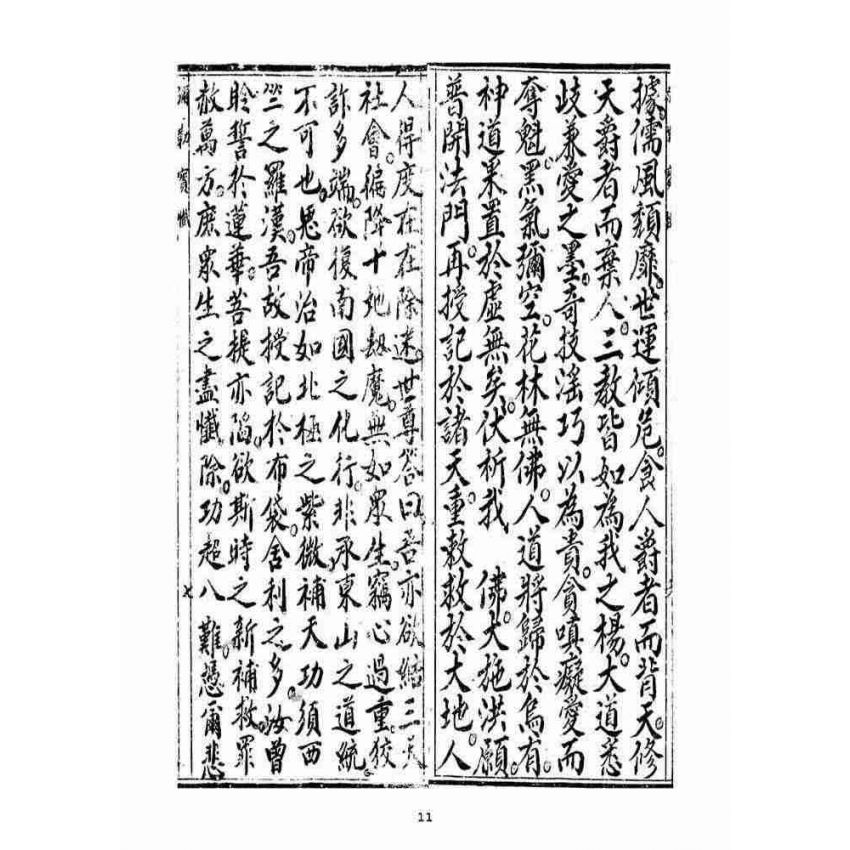 據儒風頽靡。世運傾危。食人爵者而背天。修
天爵者而棄人。三教皆如為我之楊。大道悉
歧兼愛之墨。奇技滛巧以為貴。貪嗔癡愛而
奪魁。黑氣彌空。花林無佛。人道將歸於烏有。
神道果置於虛無矣。伏祈我 佛。大施洪願。
普開法門。再授記於諸天。重敕救於大地。人
人得度在在除迷。世尊答曰。吾亦欲結三天
社會。徧降十地刼魔。無如衆生。竊心過重。狡
詐多端。欲復南國之化行。非承東山之道統
不可也。恖帝治如北極之紫微。補天功須西
竺之羅漢。吾故授記於布袋。舍利之多。汝曾
聆誓於蓮華。菩提亦陷。欲斯時之新補救。罪
赦萬方。庶衆生之盡懺除。功超八難。憑爾悲
彌勒寶懺
11